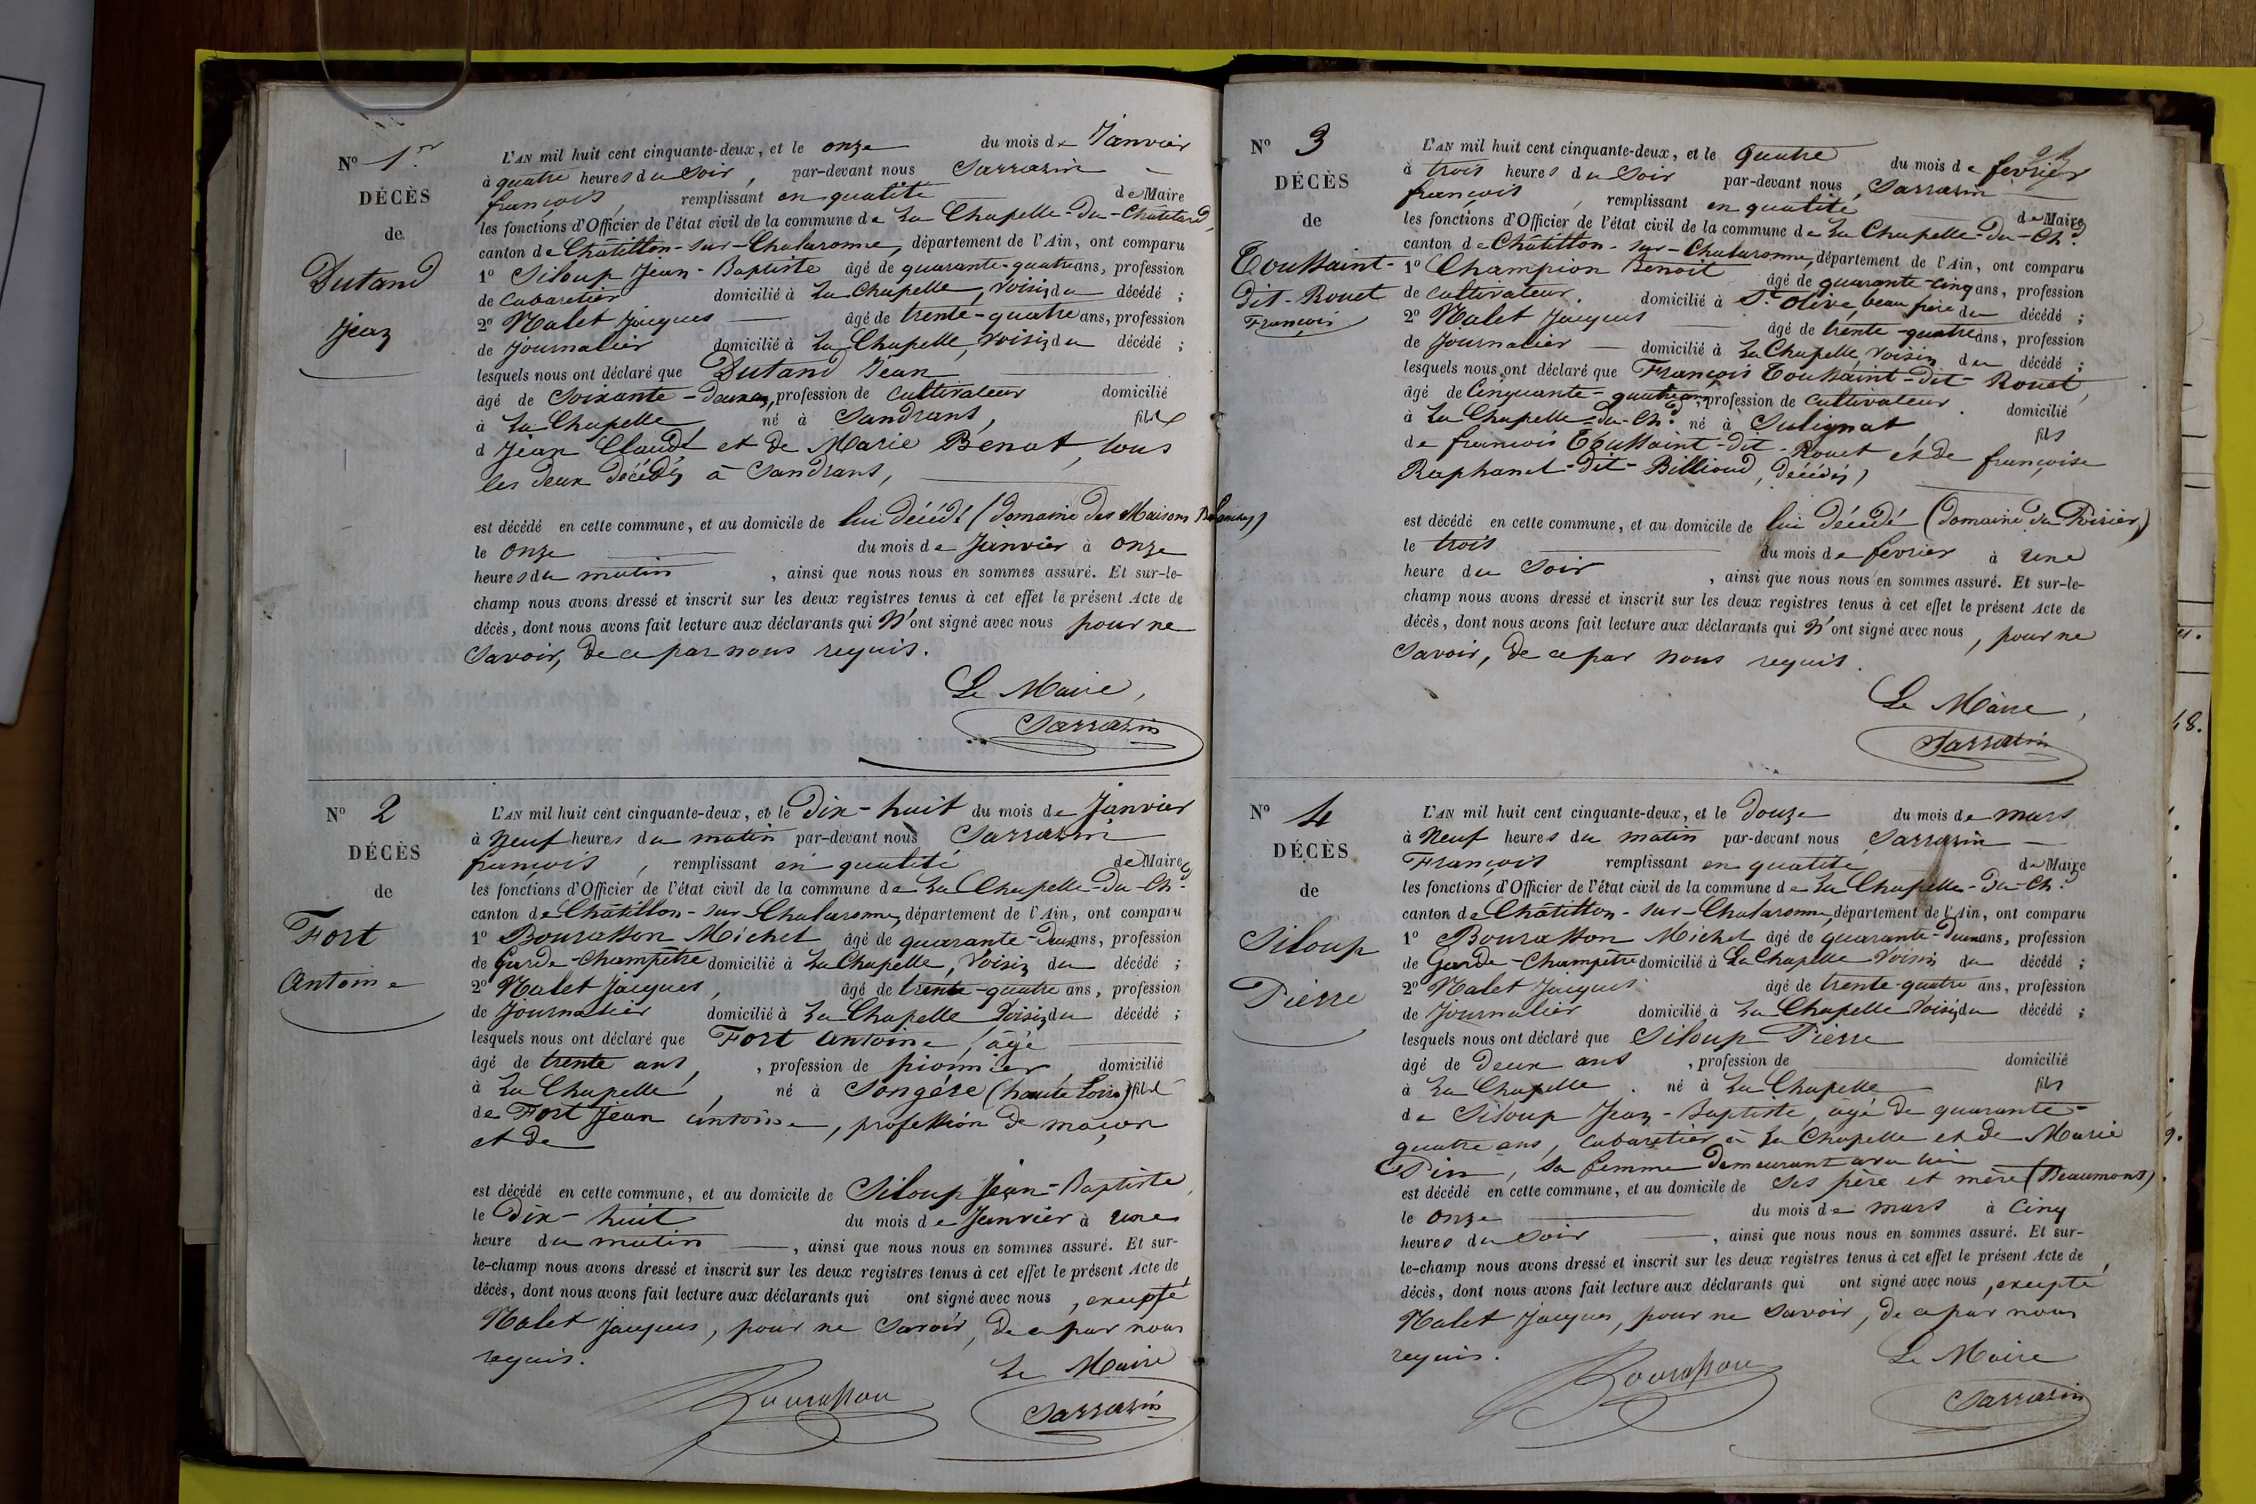 N° 1er
DÉCÈS
de
Dutand
Jean
L'AN mil huit cent cinquante-deux, et le onze du mois de Janvier
à quatre heures du soir, par-devant nous Sarrazin
françois, remplissant en qualité de Maire
les fonctions d'Officier de l'état civil de la commune de La Chapelle-du-Châtelard,
canton de Châtillon-sur-Chalaronne, département de l'Ain, ont comparu
1° Siloup Jean-Baptiste âgé de quarante-quatre ans, profession
de cabaretier domicilié à La Chapelle, voisin du décédé ;
2° Nalet Jacques âgé de trente-quatre ans, profession
de journalier domicilié à La Chapelle, voisin du décédé ;
lesquels nous ont déclaré que Dutand Jean
âgé de soixante-deux ans, profession de cultivateur domicilié
à La Chapelle, né à Sandrans, fils
d Jean Claude et de Marie Benat, tous
les deux décédés à Sandrans,
est décédé en cette commune, et au domicile de lui décédé (domaine des Maisons
le onze du mois de Janvier à onze
heures du matin, ainsi que nous nous en sommes assuré. Et sur-le-
champ nous avons dressé et inscrit sur les deux registres tenus à cet effet le présent Acte de
décès, dont nous avons fait lecture aux déclarants qui n'ont signé avec nous pour ne
savoir, de ce par nous requis.
Le Maire,
Sarrazin
N° 2
DÉCÈS
de
Fort
Antoine
L'AN mil huit cent cinquante-deux, et le dix-huit du mois de Janvier
à neuf heures du matin par-devant nous Sarrazin
françois, remplissant en qualité de Maire
les fonctions d'Officier de l'état civil de la commune de La Chapelle-du-Chd
canton de Châtillon-sur-Chalaronne, département de l'Ain, ont comparu
1° Bourasson Michel âgé de quarante-deux ans, profession
de garde-champêtre domicilié à La Chapelle, voisin du décédé ;
2° Nalet Jacques, âgé de trente-quatre ans, profession
de journalier domicilié à La Chapelle voisin du décédé ;
lesquels nous ont déclaré que Fort Antoine, âgé
âgé de trente ans, profession de pionnier, domicilié
à La Chapelle, né à Songére (haute Loire) fils
de Fort Jean antoine, profession de maçon
et de
est décédé en cette commune, et au domicile de Siloup Jean-Baptiste,
le dix-huit du mois de Janvier à une
heure du matin, ainsi que nous nous en sommes assuré. Et sur-
le-champ nous avons dressé et inscrit sur les deux registres tenus à cet effet le présent Acte de
décès, dont nous avons fait lecture aux déclarants qui ont signé avec nous, excepté
Nalet Jacques, pour ne savoir, de ce par nous
requis.
Le Maire
Bourasson
Sarrazin
N° 3
DÉCÈS
de
Toussaint-
dit-Rouet
François
L'AN mil huit cent cinquante-deux, et le quatre du mois de fevrier
à trois heures du soir par-devant nous Sarrazin
françois, remplissant en qualité de Maire
les fonctions d'Officier de l'état civil de la commune de La Chapelle-du-Chd
canton de Châtillon-sur-Chalaronne, département de l'Ain, ont comparu
1° Champion Benoit âgé de quarante-cinq ans, profession
de cultivateur. domicilié à St Olive, beau frère du décédé ;
2° Nalet Jacques âgé de trente-quatre ans, profession
de journalier domicilié à La Chapelle, voisin du décédé ;
lesquels nous ont déclaré que François Toussaint-dit-Rouet,
âgé de cinquante-quatre ans, profession de cultivateur. domicilié
à La Chapelle-du-Chd né à Sulignat fils
de françois Toussaint-dit-Rouet et de françoise
Raphanel-dit-Billioud, décédés,
est décédé en cette commune, et au domicile de lui décédé (domaine du Poirier)
le trois du mois de fevrier à une
heure du soir, ainsi que nous nous en sommes assuré. Et sur-le-
champ nous avons dressé et inscrit sur les deux registres tenus à cet effet le présent Acte de
décès, dont nous avons fait lecture aux déclarants qui n'ont signé avec nous, pour ne
savoir, de ce par nous requis.
Le Maire,
Sarrazin
N° 4
DÉCÈS
de
Siloup
Pierre
L'AN mil huit cent cinquante-deux, et le douze du mois de mars
à neuf heures du matin par-devant nous Sarrazin
François remplissant en qualité de Maire
les fonctions d'Officier de l'état civil de la commune de La Chapelle-du-Chd
canton de Châtillon-sur-Chalaronne, département de l'Ain, ont comparu
1° Bourasson Michel âgé de quarante-deux ans, profession
de Garde-Champêtre domicilié à La Chapelle voisin du décédé ;
2° Nalet Jacques âgé de trente-quatre ans, profession
de journalier domicilié à La Chapelle voisin du décédé ;
lesquels nous ont déclaré que Siloup Pierre
âgé de deux ans, profession de domicilié
à La Chapelle. né à La Chapelle fils
de Siloup Jean-Baptiste, agé de quarante-
quatre ans, cabaretier à La Chapelle et de Marie
Pin, sa femme demeurant avec lui
est décédé en cette commune, et au domicile de ses père et mère (Beaumont).
le onze du mois de mars à cinq
heures du soir, ainsi que nous nous en sommes assuré. Et sur-
le-champ nous avons dressé et inscrit sur les deux registres tenus à cet effet le présent Acte de
décès, dont nous avons fait lecture aux déclarants qui ont signé avec nous, excepté
Nalet Jacques, pour ne savoir, de ce par nous
requis.
Le Maire
Bourasson
Sarrazin
48.
9.